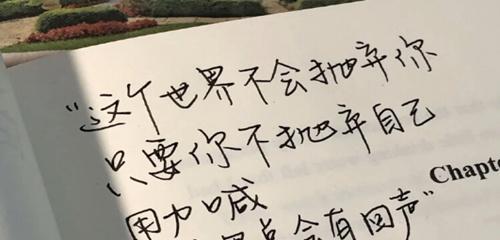 “这个世界不会抛弃你
只要你不抛弃自己
用力喊
会有回声”
Chapte